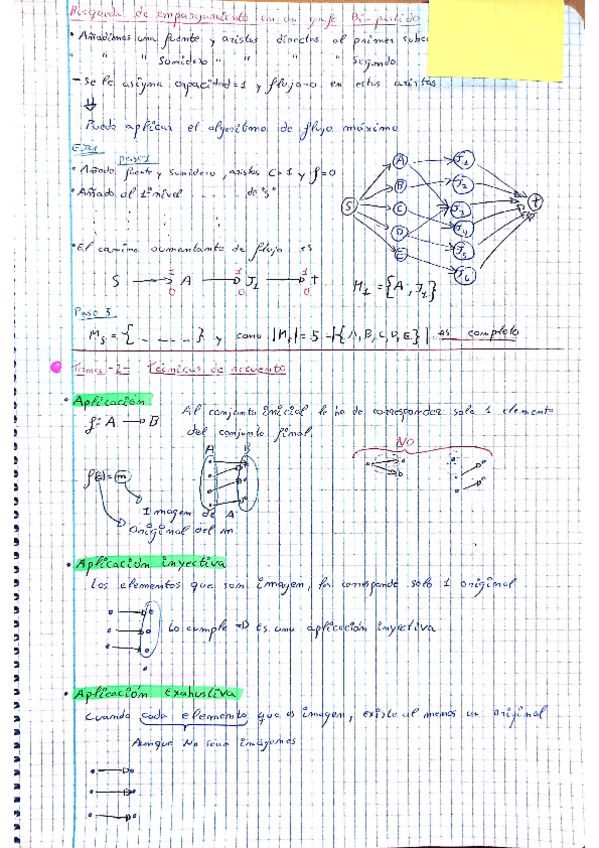 Búsqueda de emparejamiento en un grafo Bi-partido
• Añadimos una fuente y aristas directas al primer subco
" " Sumidero " " " " Segundo
- Se le asigna capacidad=1 y flujo=0 en estas aristas
⇓
Puedo aplicar el algoritmo de flujo máximo
EJ1
paso 1
• Añado fuente y sumidero, aristas C=1 y f=0
• Añado al 1º nivel de "S"
• El camino aumentante de flujo es
S → A → J1 → t
1 1 1
0 0 0
M1 = {A, J1}
S A B C D E J1 J2 J3 J4 J5 J6 t
Paso 5
M5 = {_ _ _ _ _} y como |M5| = 5 = |{A, B, C, D, E}| es completo
Tema-2= Técnicas de recuento
• Aplicación
f: A → B
Al conjunto inicial le ha de corresponder solo 1 elemento
del conjunto final.
NO
A B
a b
Imagen de A
Original del m
• Aplicación inyectiva
Los elementos que son imagen, les corresponde solo 1 original
Lo cumple ⇒ Es una aplicación inyectiva
• Aplicación Exahustiva
Cuando cada elemento que es imagen, existe al menos un original
Aunque No sean imágenes